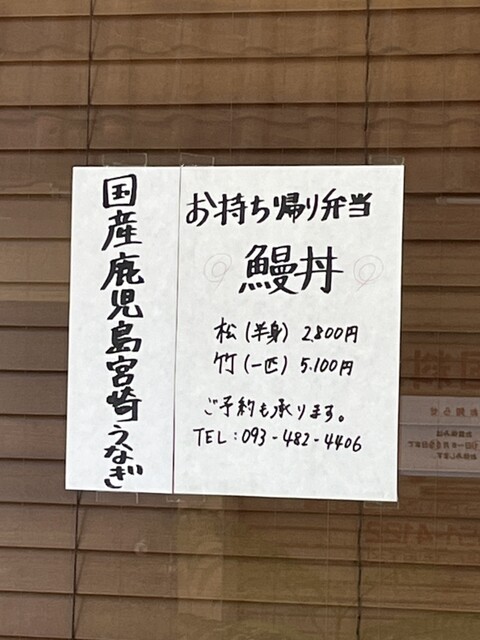 国産鹿児島宮崎うなぎ
お持ち帰り弁当
鰻丼
松(半身) 2.800円
竹(一匹) 5.100円
ご予約も承ります。
TEL:093-482-4406